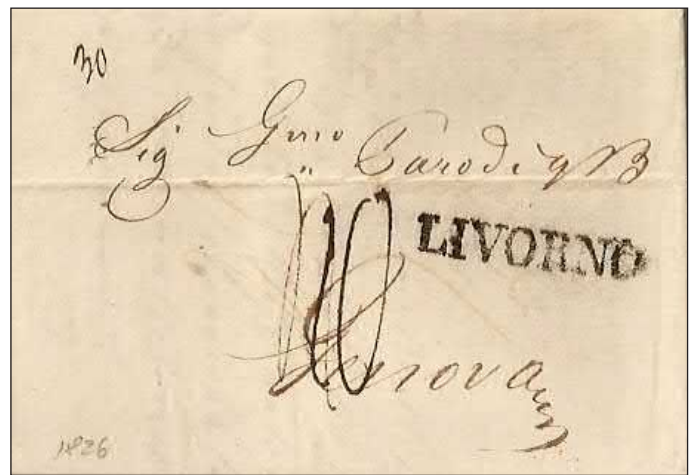 30
Sig Gmo Parodi q B
LIVORNO
Genova
1826